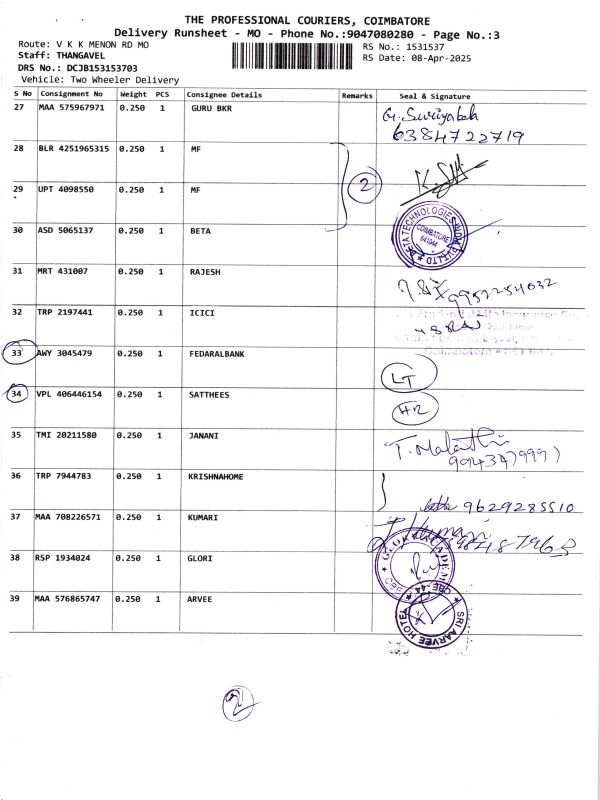 THE PROFESSIONAL COURIERS, COIMBATORE
Delivery Runsheet - MO - Phone No.:9047080280 - Page No.:3
Route: V K K MENON RD MO
RS No.: 1531537
Staff: THANGAVEL
RS Date: 08-Apr-2025
DRS No.: DCJB153153703
Vehicle: Two Wheeler Delivery
S No Consignment No Weight PCS Consignee Details Remarks Seal & Signature
27 MAA 575967971 0.250 1 GURU BKR
6384722719
28 BLR 4251965315 0.250 1 MF
2
29 UPT 4098550 0.250 1 MF
30 ASD 5065137 0.250 1 BETA
COIMBATORE 641044
31 MRT 431007 0.250 1 RAJESH
9952254032
32 TRP 2197441 0.250 1 ICICI
33 AWY 3045479 0.250 1 FEDARALBANK
LT
34 VPL 406446154 0.250 1 SATTHEES
35 TMI 20211580 0.250 1 JANANI
T. Malathi
36 TRP 7944783 0.250 1 KRISHNAHOME
9629285510
37 MAA 708226571 0.250 1 KUMARI
38 RSP 1934024 0.250 1 GLORI
39 MAA 576865747 0.250 1 ARVEE
SRI AARVEE HOTEL